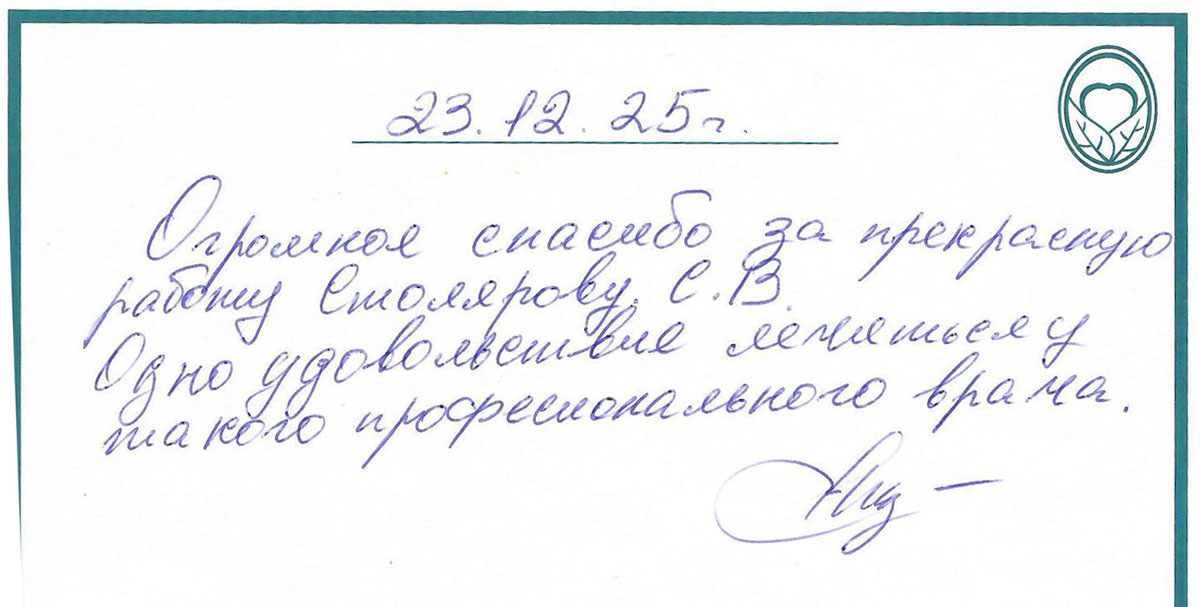 23.12.25г.
Огромное спасибо за прекрасную
работу Столярову С.В.
Одно удовольствие лечиться у
такого професионального врача.